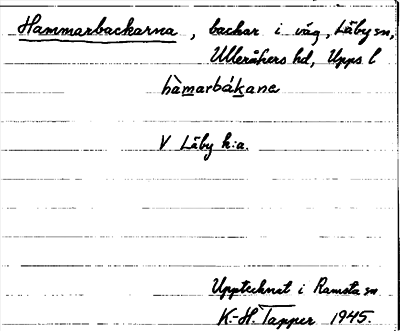 Hammarbackarna, backar i väg, Läby sn,
Ulleråkers hd, Upps l
hàmarbákane
V Läby k:a.
Upptecknat i Ramsta sn
K.-H. Tapper 1945.